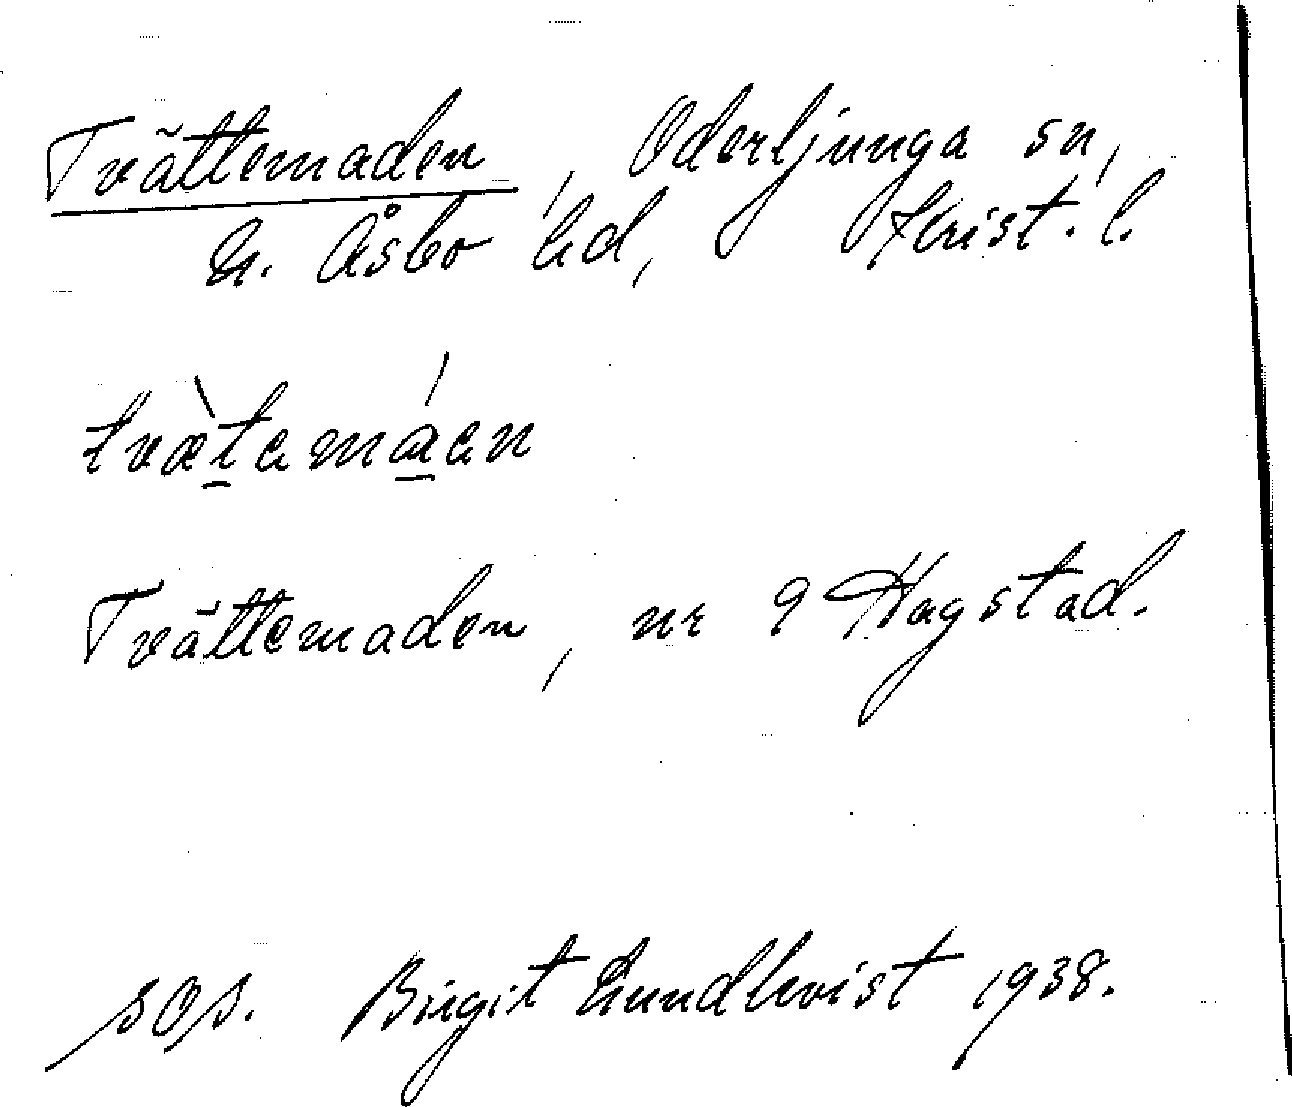 Tvättemaden, Oderljunga sn,
N. Åsbo hd, Krist. l.
tvæ̀temáen
Tvättemaden, nr 9 Hagstad.
sOs. Birgit Lundkvist 1938.